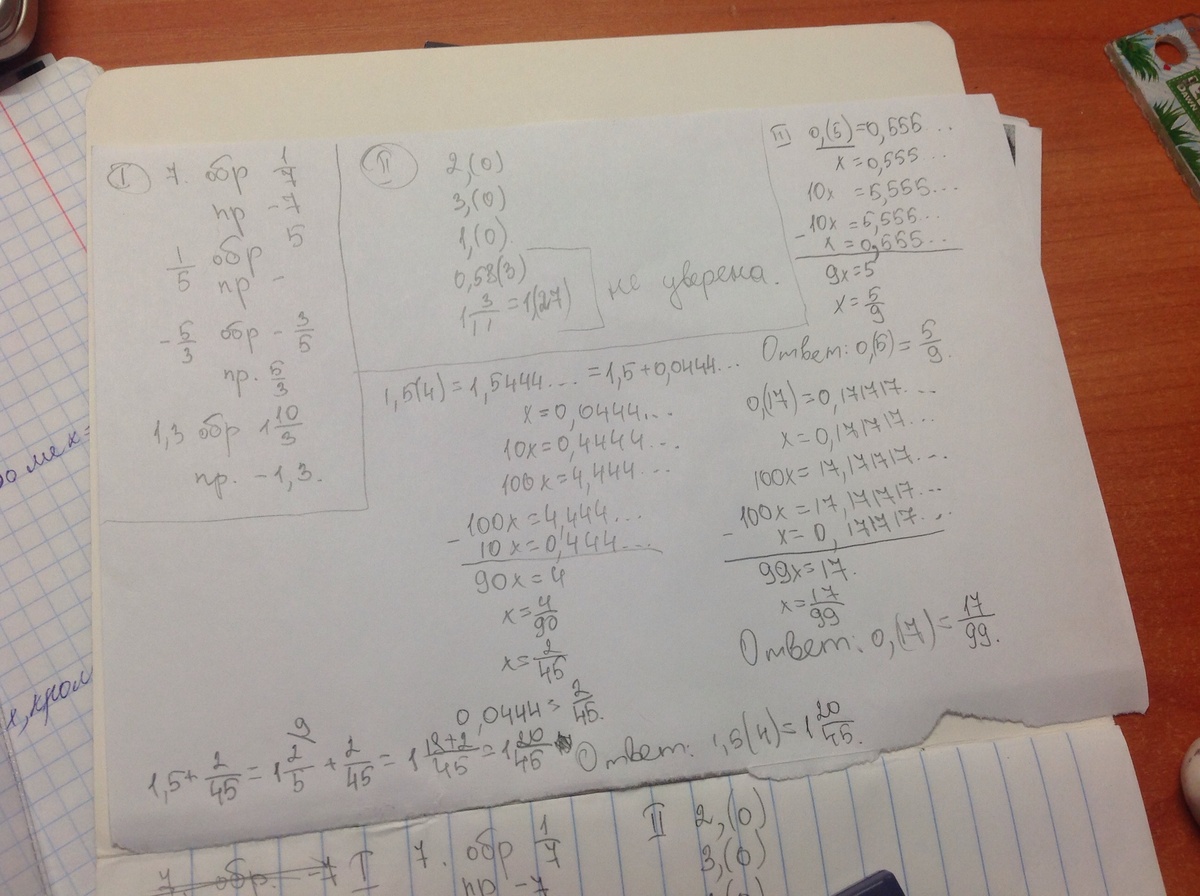 I 7. обр 1/7
пр -7
1/5 обр 5
пр -
-5/3 обр -3/5
пр. 5/3
1,3 обр 1 10/3
пр. -1,3.
II 2,(0)
3,(0)
1,(0).
0,58(3)
1 3/11 = 1(27)
не уверена.
III 0,(5)=0,555 ..
x=0,555 ..
10x =5,555...
-10x=5,555...
x=0,555..
9x=5
x=5/9
Ответ: 0,(5)=5/9.
0,(17)=0,171717...
x=0,171717...
100x=17,171717...
-100x=17,171717...
x=0,171717...
99x=17.
x=17/99
Ответ: 0,(17)=17/99.
1,5(4)=1,5444... =1,5+0,0444...
x=0,0444...
10x=0,4444...
100x=4,444...
-100x=4,444...
10x=0,444...
90x=4
x=4/90
x=2/45
0,0444=2/45.
9
1,5+2/45=1 2/5+2/45=1 18+2/45=1 20/45
Ответ: 1,5(4)=1 20/45.
7. обр. -7 I
7. обр 1/7
пр -7
II 2,(0)
3,(0)